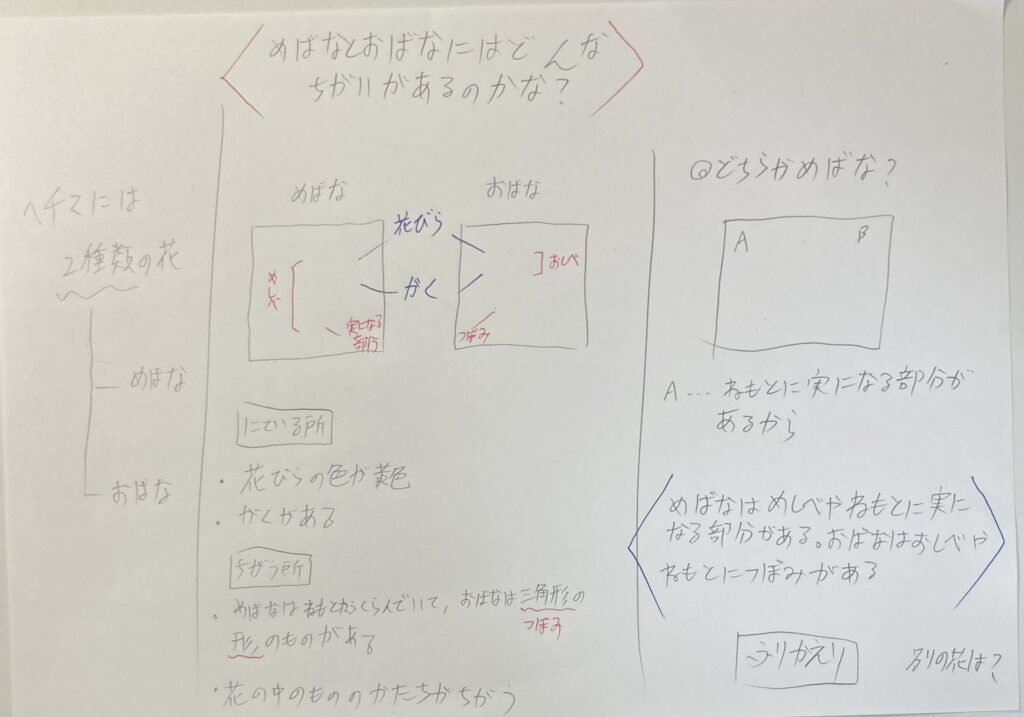 めばなとおばなにはどんな
ちがいがあるのかな?
ヘチマには
2種類の花
めばな
おばな
めばな
おばな
花びら
がく
めしべ
実になる
部分
おしべ
つぼみ
にている所
・花びらの色が黄色
・がくがある
ちがう所
・めばなはねもとがふくらんでいて、おばなは三角形の
つぼみ
形のものがある
・花の中のもののかたちがちがう
◎どちらがめばな?
A
B
A…ねもとに実になる部分が
あるから
めばなはめしべやねもとに実に
なる部分がある。おばなはおしべや
ねもとにつぼみがある
ふりかえり
別の花は?